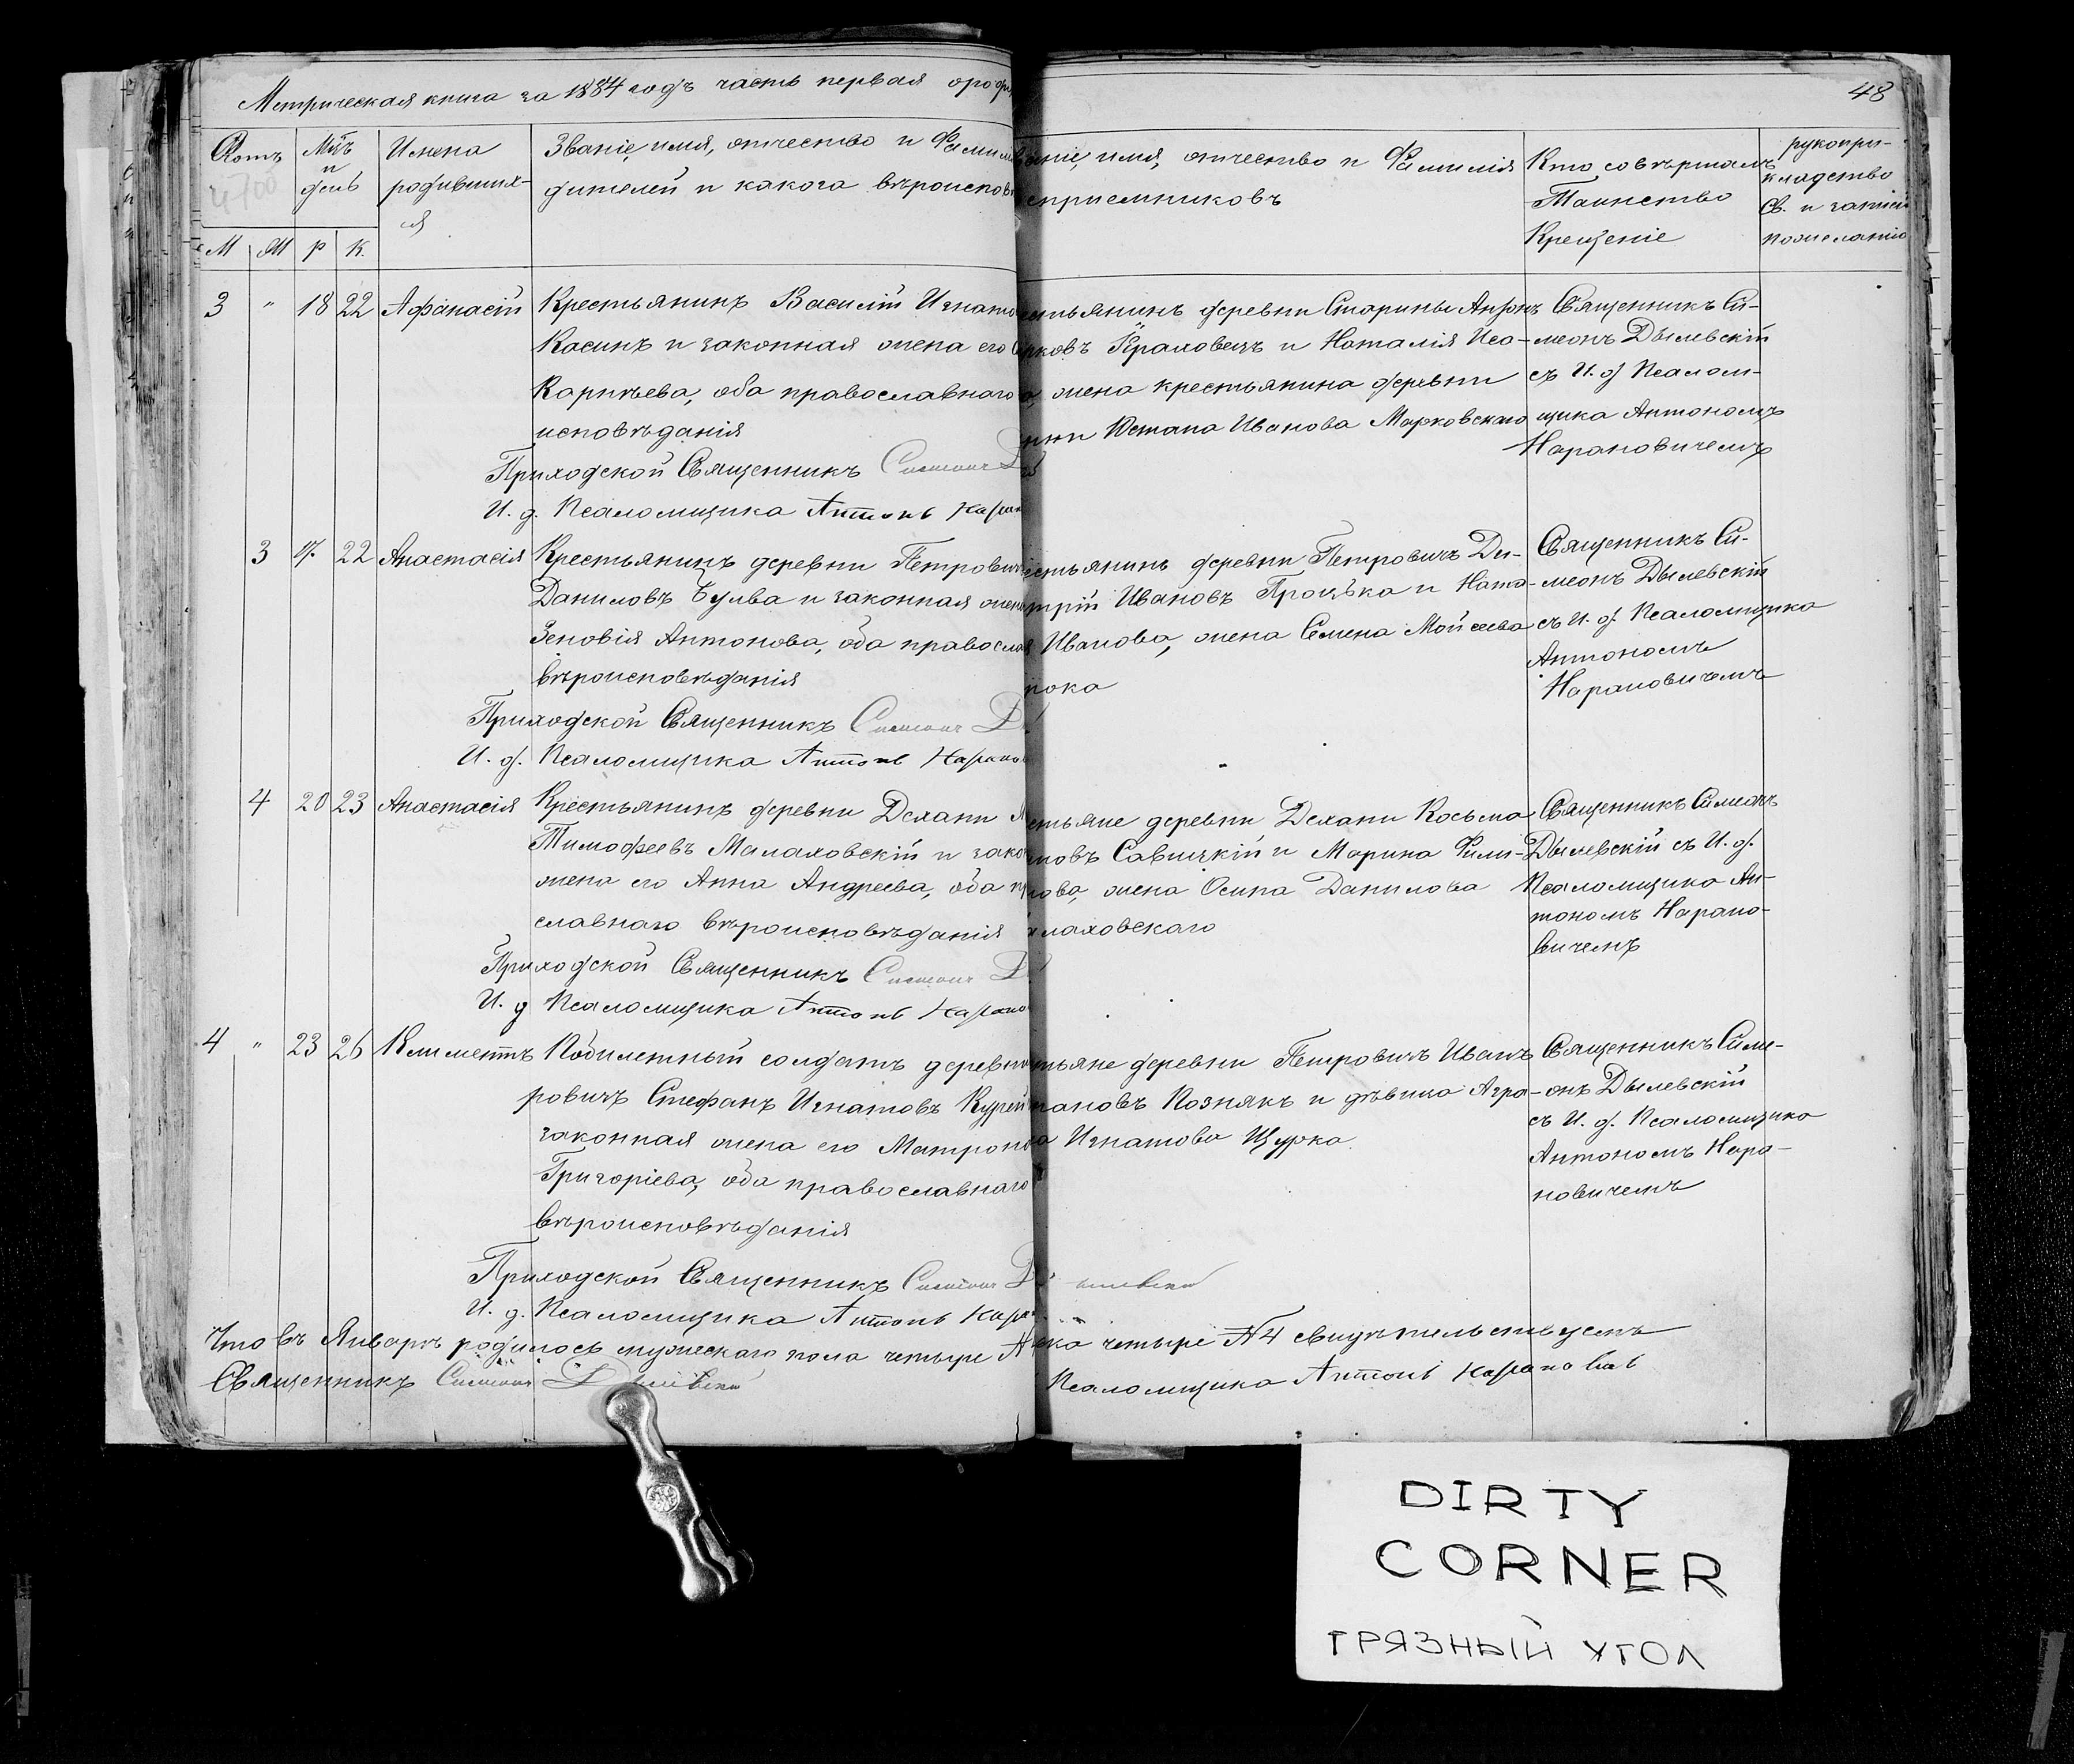 Метрическая книга за 1884 годъ часть первая о родив
48
Мѣц
и
день
Имена
родивших-
ся
Званіе, имя, отчество и Фамилія
дителей и какого вѣроиспов
М Ж Р К.
аніе, имя, отчество и Фамилія
спріемниковъ
Кто совершалъ
Таинство
Крещеніе
рукопри-
кладство
св. и записи
пожеланію
3 " 18 22 Афанасій
Крестьянинъ Василій Игнато
Касинъ и законная жена его
Карпѣева, оба православнаго
исповѣданія
Приходской Священникъ Симеонъ
И. д. Псаломщика Антонъ Наран
естьянинъ деревни Старины Антонъ
рковъ Краховецъ и Наталія Иса-
а, жена крестьянина деревни
ини Юстапа Иванова Марковскаго
Священникъ Си-
меонъ Дылевскій
съ И. д. Псалом-
щика Антономъ
Нарановичемъ
3 17. 22 Анастасія
Крестьянинъ деревни Петрович
Даниловъ Бульва и законная жена
Зеновія Антонова, оба правосла
вѣроисповѣданія
Приходской Священникъ Симеонъ
И. д. Псаломщика Антонъ Наранов
естьянинъ деревни Петровичъ Ди-
трій Ивановъ Процька и Ната-
Иванова, жена Семена Мойсеева
рока
Священникъ Си-
меонъ Дылевскій
съ И. д. Псаломщика
Антономъ
Нарановичемъ
4 20 23 Анастасія
Крестьянинъ деревни Дехани
Тимофеевъ Малаховскій и закон
жена его Анна Андреева, оба пр
славнаго вѣроисповѣданія
Приходской Священникъ Симеонъ
И. д Псаломщика Антонъ Нарано
естьяне деревни Дехани Косьма
новъ Савицкій и Марина Фили-
пова, жена Осипа Данилова
лаховскаго
Священникъ Симеонъ
Дылевскій съ И. д.
Псаломщика Ан-
тономъ Нарано-
вичемъ
4 " 23 26 Климентъ
солдатъ деревни
ровичъ Стефанъ Игнатовъ Курей
законная жена его Матрона
Григоріева, оба православнаго
вѣроисповѣданія
Приходской Священникъ Симеонъ
И. д. Псаломщика Антонъ Наран
тьяне деревни Петровичъ Иванъ
пановъ Познякъ и дѣвица Агра-
а Игнатова Щурка
Священникъ Симе-
онъ Дылевскій
съ И. д. Псаломщика
Антономъ Нара-
новичемъ
Что въ Январѣ родилось мужескаго пола четыре
Священникъ Симеонъ Дылевскій
ска четыре №4 свидѣтельствуемъ
Псаломщика Антонъ Нарановичъ
DIRTY
CORNER
ГРЯЗНЫЙ УГОЛ